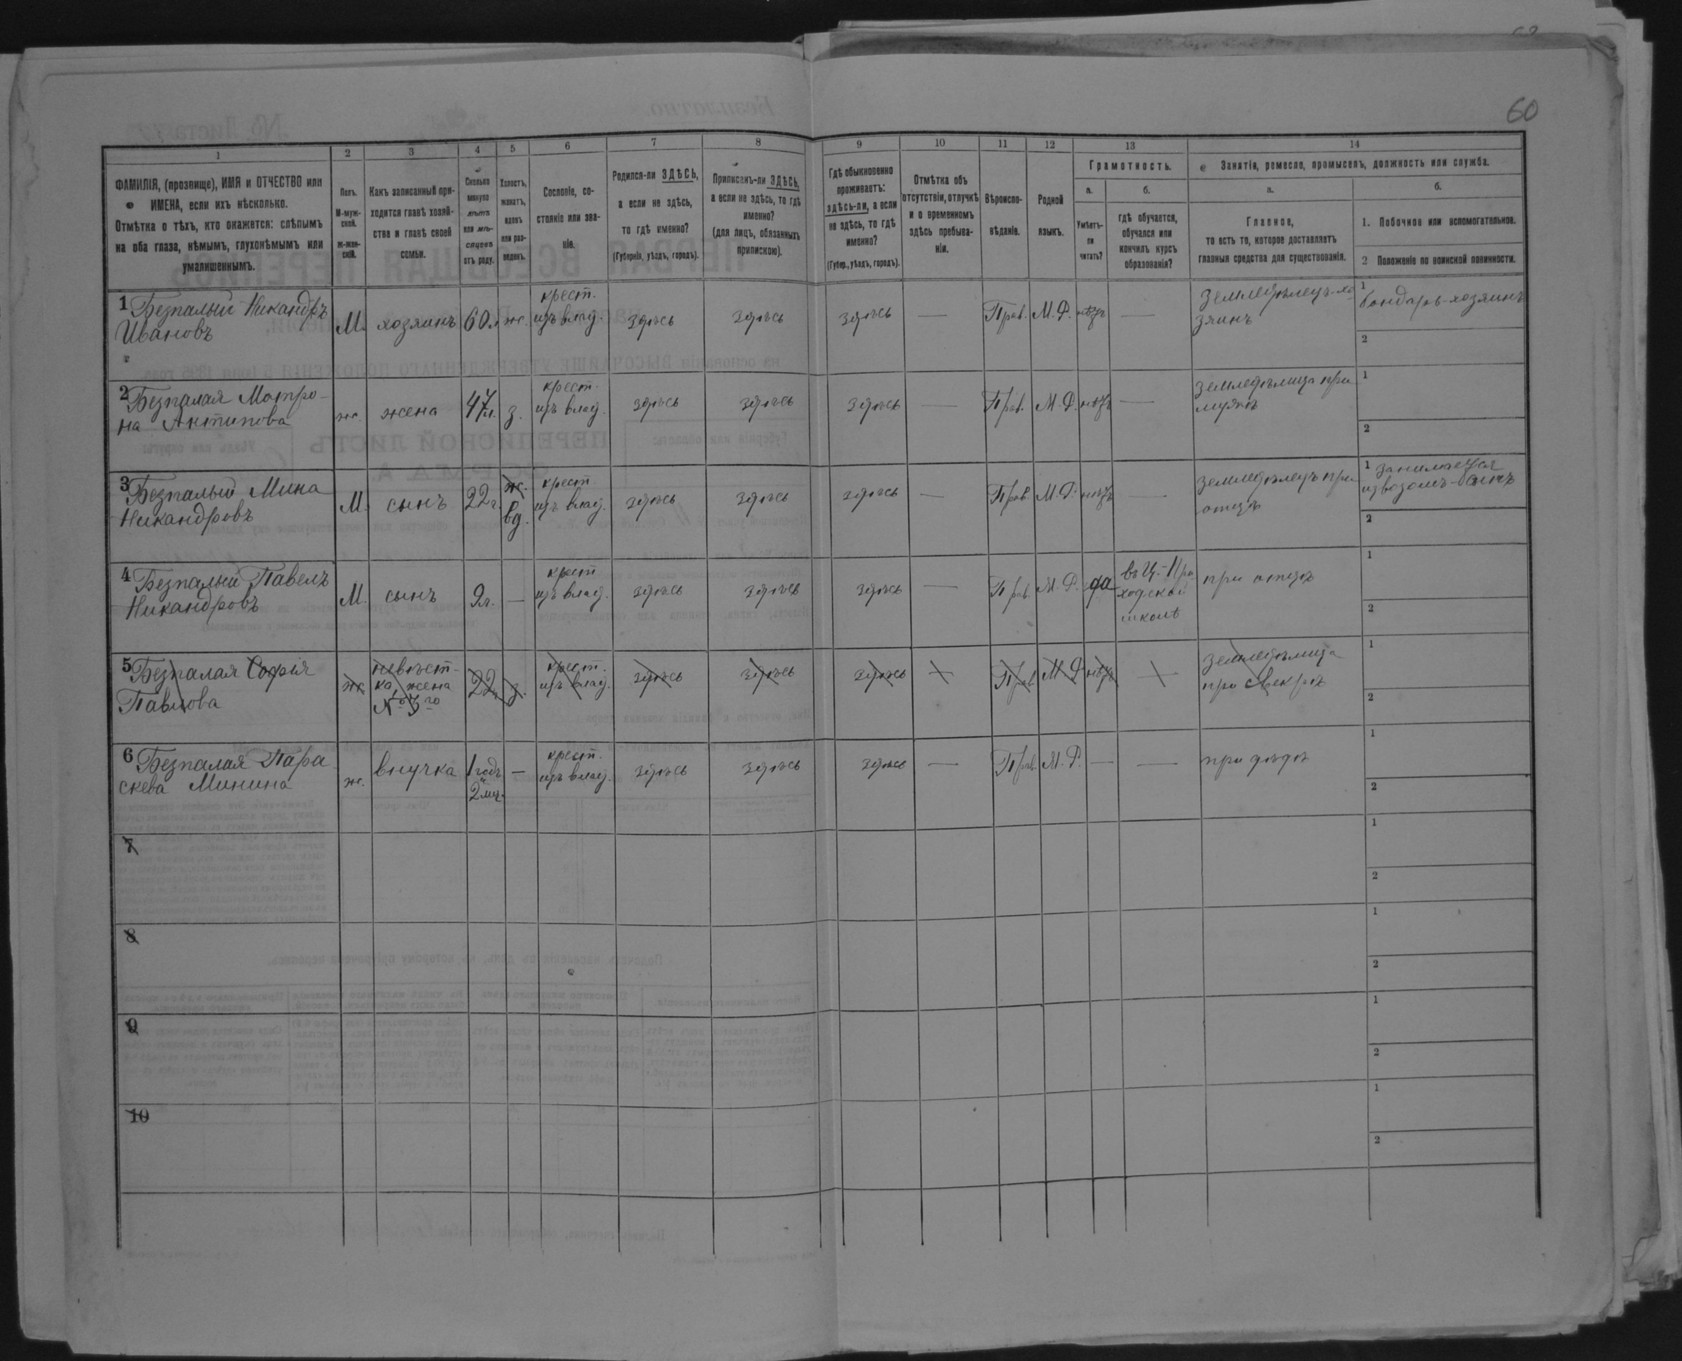 60
1
2
3
4
5
6
7
8
9
10
11
12
13
14
ФАМИЛІЯ, (прозвище), ИМЯ и ОТЧЕСТВО или
ИМЕНА, если ихъ нѣсколько.
Отмѣтка о тѣхъ, кто окажется: слѣпымъ
на оба глаза, нѣмымъ, глухонѣмымъ или
умалишеннымъ.
Полъ.
М-муж-
ской.
Ж-жен-
скій.
Какъ записанный при-
ходится главѣ хозяй-
ства и главѣ своей
семьи.
Сколько
минуло
лѣтъ
или мѣ-
сяцевъ
отъ роду.
Холостъ,
женатъ,
вдовъ
или раз-
веденъ.
Сословіе, со-
стояніе или зва-
ніе.
Родился-ли ЗДѢСЬ,
а если не здѣсь,
то гдѣ именно?
(Губернія, уѣздъ, городъ).
Приписанъ-ли ЗДѢСЬ,
а если не здѣсь, то гдѣ
именно?
(для лицъ, обязанныхъ
припискою).
Гдѣ обыкновенно
проживаетъ:
здѣсь-ли, а если
не здѣсь, то гдѣ
именно?
(Губер., уѣздъ, городъ).
Отмѣтка объ
отсутствіи, отлучкѣ
и о временномъ
здѣсь пребыва-
ніи.
Вѣроиспо-
вѣданіе.
Родной
языкъ.
Грамотность.
а.
Умѣетъ-
ли
читать?
б.
гдѣ обучается,
обучался или
кончилъ курсъ
образованія?
Занятія, ремесло, промыселъ, должность или служба.
а.
Главное,
то есть то, которое доставляетъ
главныя средства для существованія.
б.
1. Побочное или вспомогательное.
2 Положеніе по воинской повинности.
1 Безпалый Никандръ
Ивановъ
М. хозяинъ 60л. ж.
крест.
изъ влад.
здѣсь здѣсь здѣсь — Прав. М. Р. нѣтъ —
земледѣлецъ-хо
зяинъ
1 бондарь-хозяинъ
2
2 Безпалая Матро-
на Антипова
ж. жена 47л. з.
крест.
изъ влад.
здѣсь здѣсь здѣсь — Прав. М. Р. нѣтъ —
земледѣлица при
мужѣ
1
2
3 Безпалый Мина
Никандровъ
М. сынъ 22г. ж.
вд.
крест
изъ влад.
здѣсь здѣсь здѣсь — Прав М. Р. нѣтъ —
земледѣлецъ при
отцѣ
1 занимается
извозомъ-
2
4 Безпалый Павелъ
Никандровъ
М. сынъ 9л. —
крест
изъ влад.
здѣсь здѣсь здѣсь — Прав. М. Р. да
въ Ц.-При
ходской
школѣ
при отцѣ
1
2
5 Безпалая Софія
Павлова
ж.
невѣст-
ка, жена
№ 3го
22г. з.
крест.
изъ влад.
здѣсь здѣсь здѣсь — Прав. М. Р. нѣтъ —
земледѣлица
при свекрѣ
1
2
6 Безпалая Пара
скева Минина
ж. внучка 1 годъ
2 мц. —
крест.
изъ влад.
здѣсь здѣсь здѣсь — Прав. М. Р. — —
при дѣдѣ
1
2
7
1
2
8
1
2
9
1
2
10
1
2